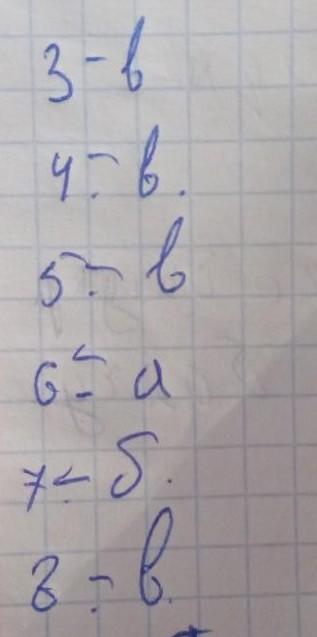 3 - в
4 - в.
5 - в
6 - а
7 - б.
8 - в.